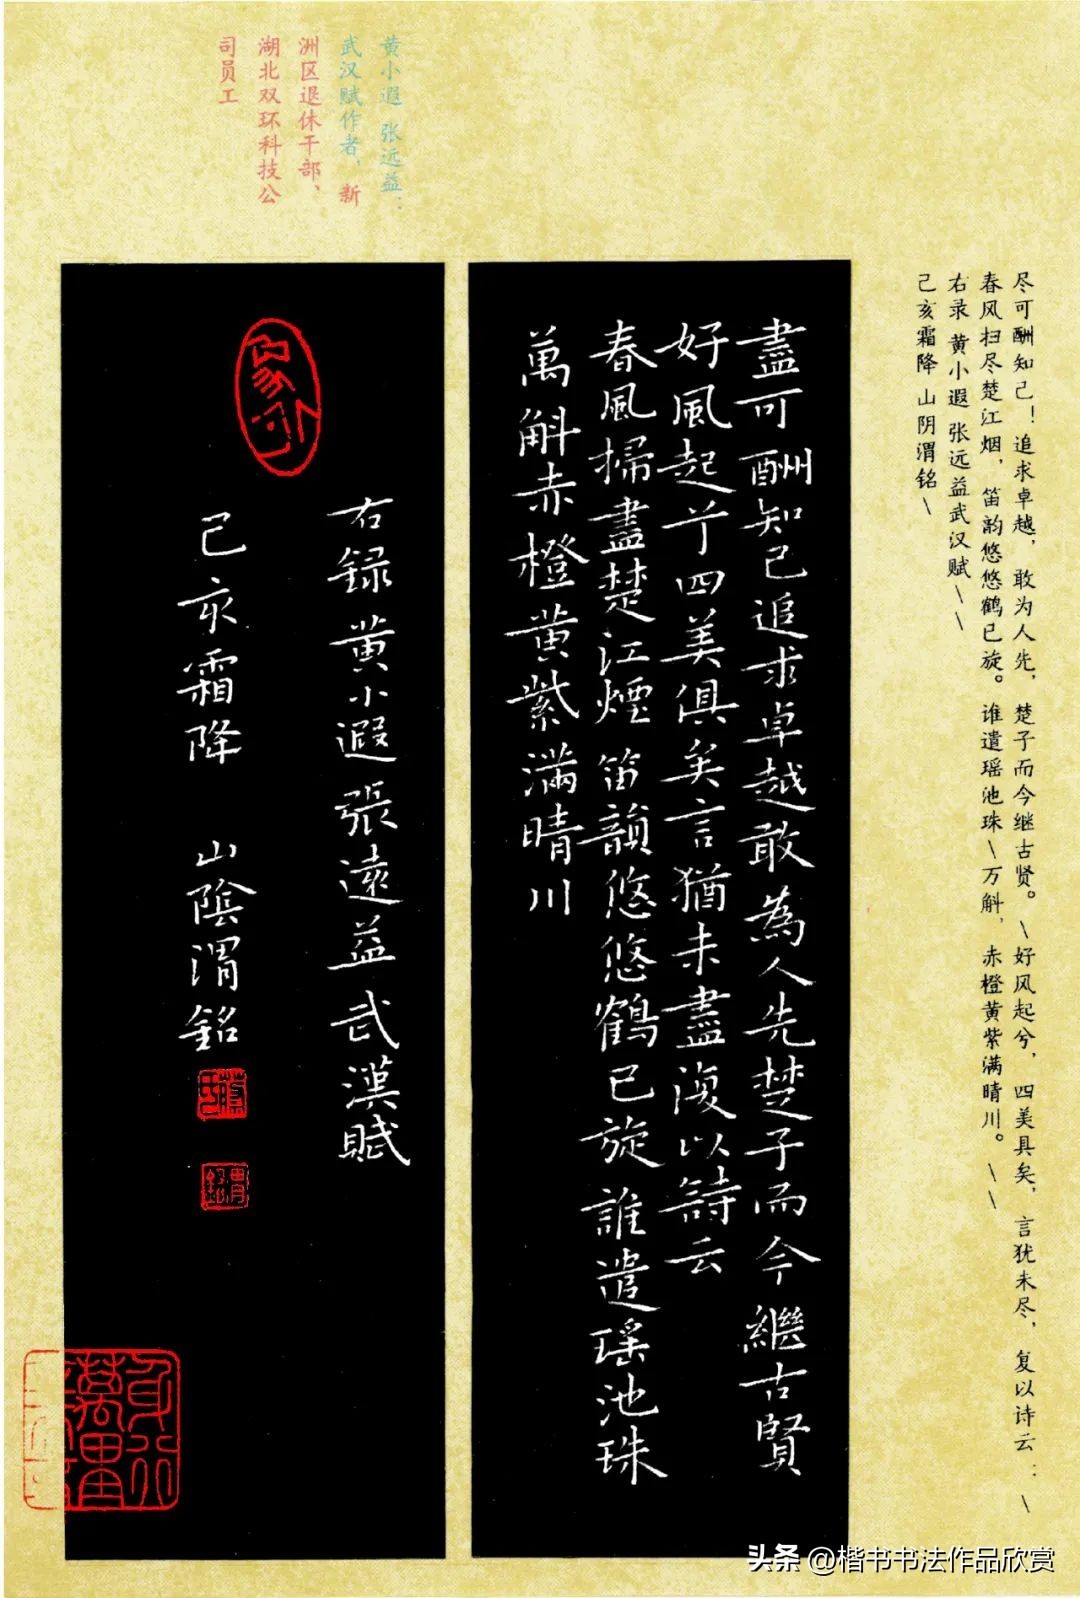 尽可酬知己！追求卓越，敢为人先，楚子而今继古贤。\好风起兮，四美具矣，言犹未尽，复以诗云：\
春风扫尽楚江烟，笛韵悠悠鹤已旋。谁遣瑶池珠\万斛，赤橙黄紫满晴川。\\
右录 黄小遐 张远益武汉赋\\
己亥霜降 山阴渭铭\
黄小遐 张远益：
武汉赋作者，新
洲区退休干部，
湖北双环科技公
司员工
盡可酬知己追求卓越敢為人先楚子而今繼古賢
好風起兮四美俱矣言猶未盡復以詩云
春風掃盡楚江煙笛韻悠悠鶴已旋誰遣瑶池珠
萬斛赤橙黄紫滿晴川
右録黄小遐張遠益武漢賦
己亥霜降 山陰渭銘
渭銘
头条 @楷书书法作品欣赏